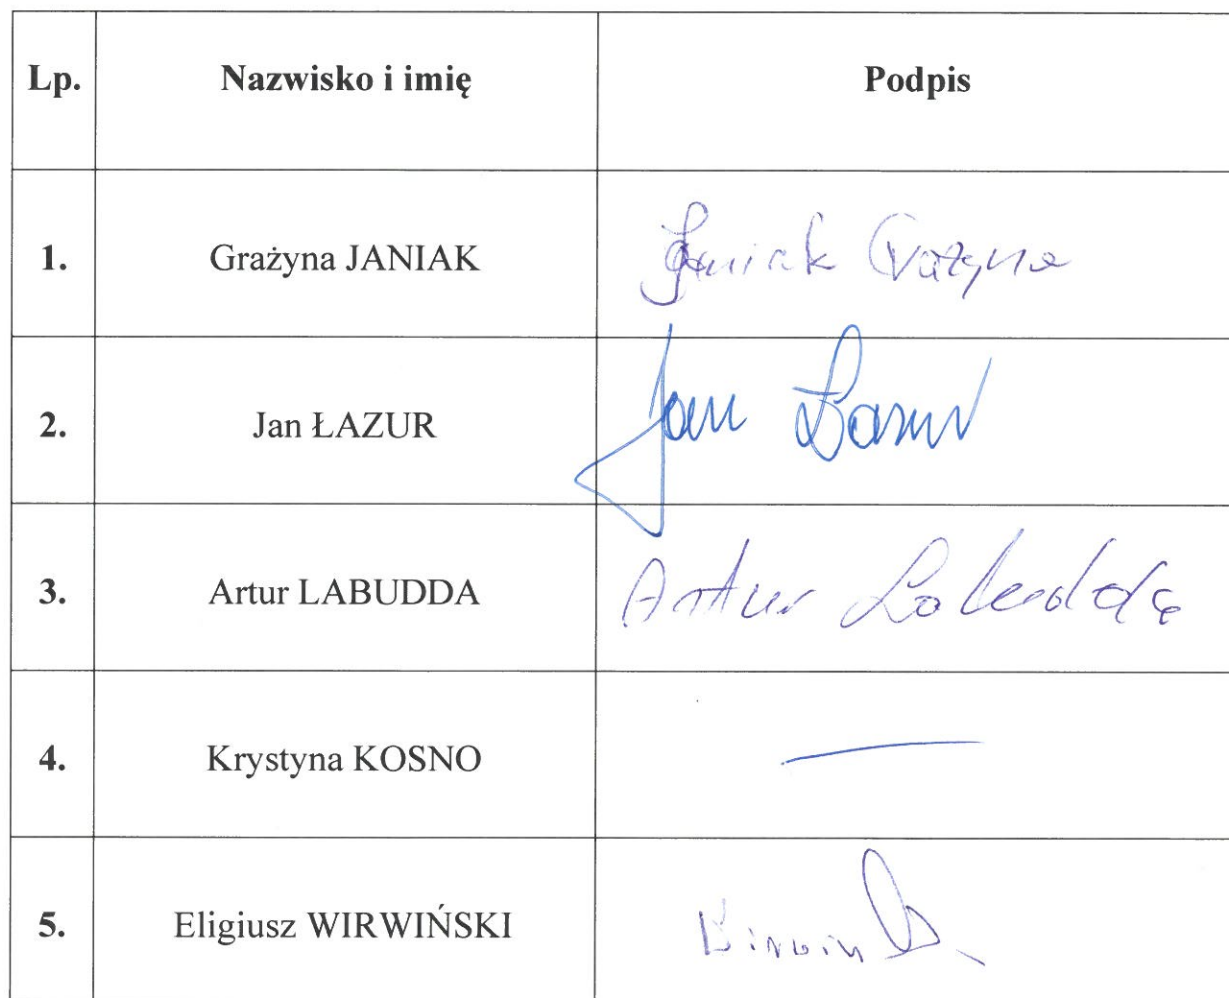 Lp. Nazwisko i imię Podpis
1. Grażyna JANIAK Janiak Grażyna
2. Jan ŁAZUR Jan Łazur
3. Artur LABUDDA Artur Labudda
4. Krystyna KOSNO —
5. Eligiusz WIRWIŃSKI